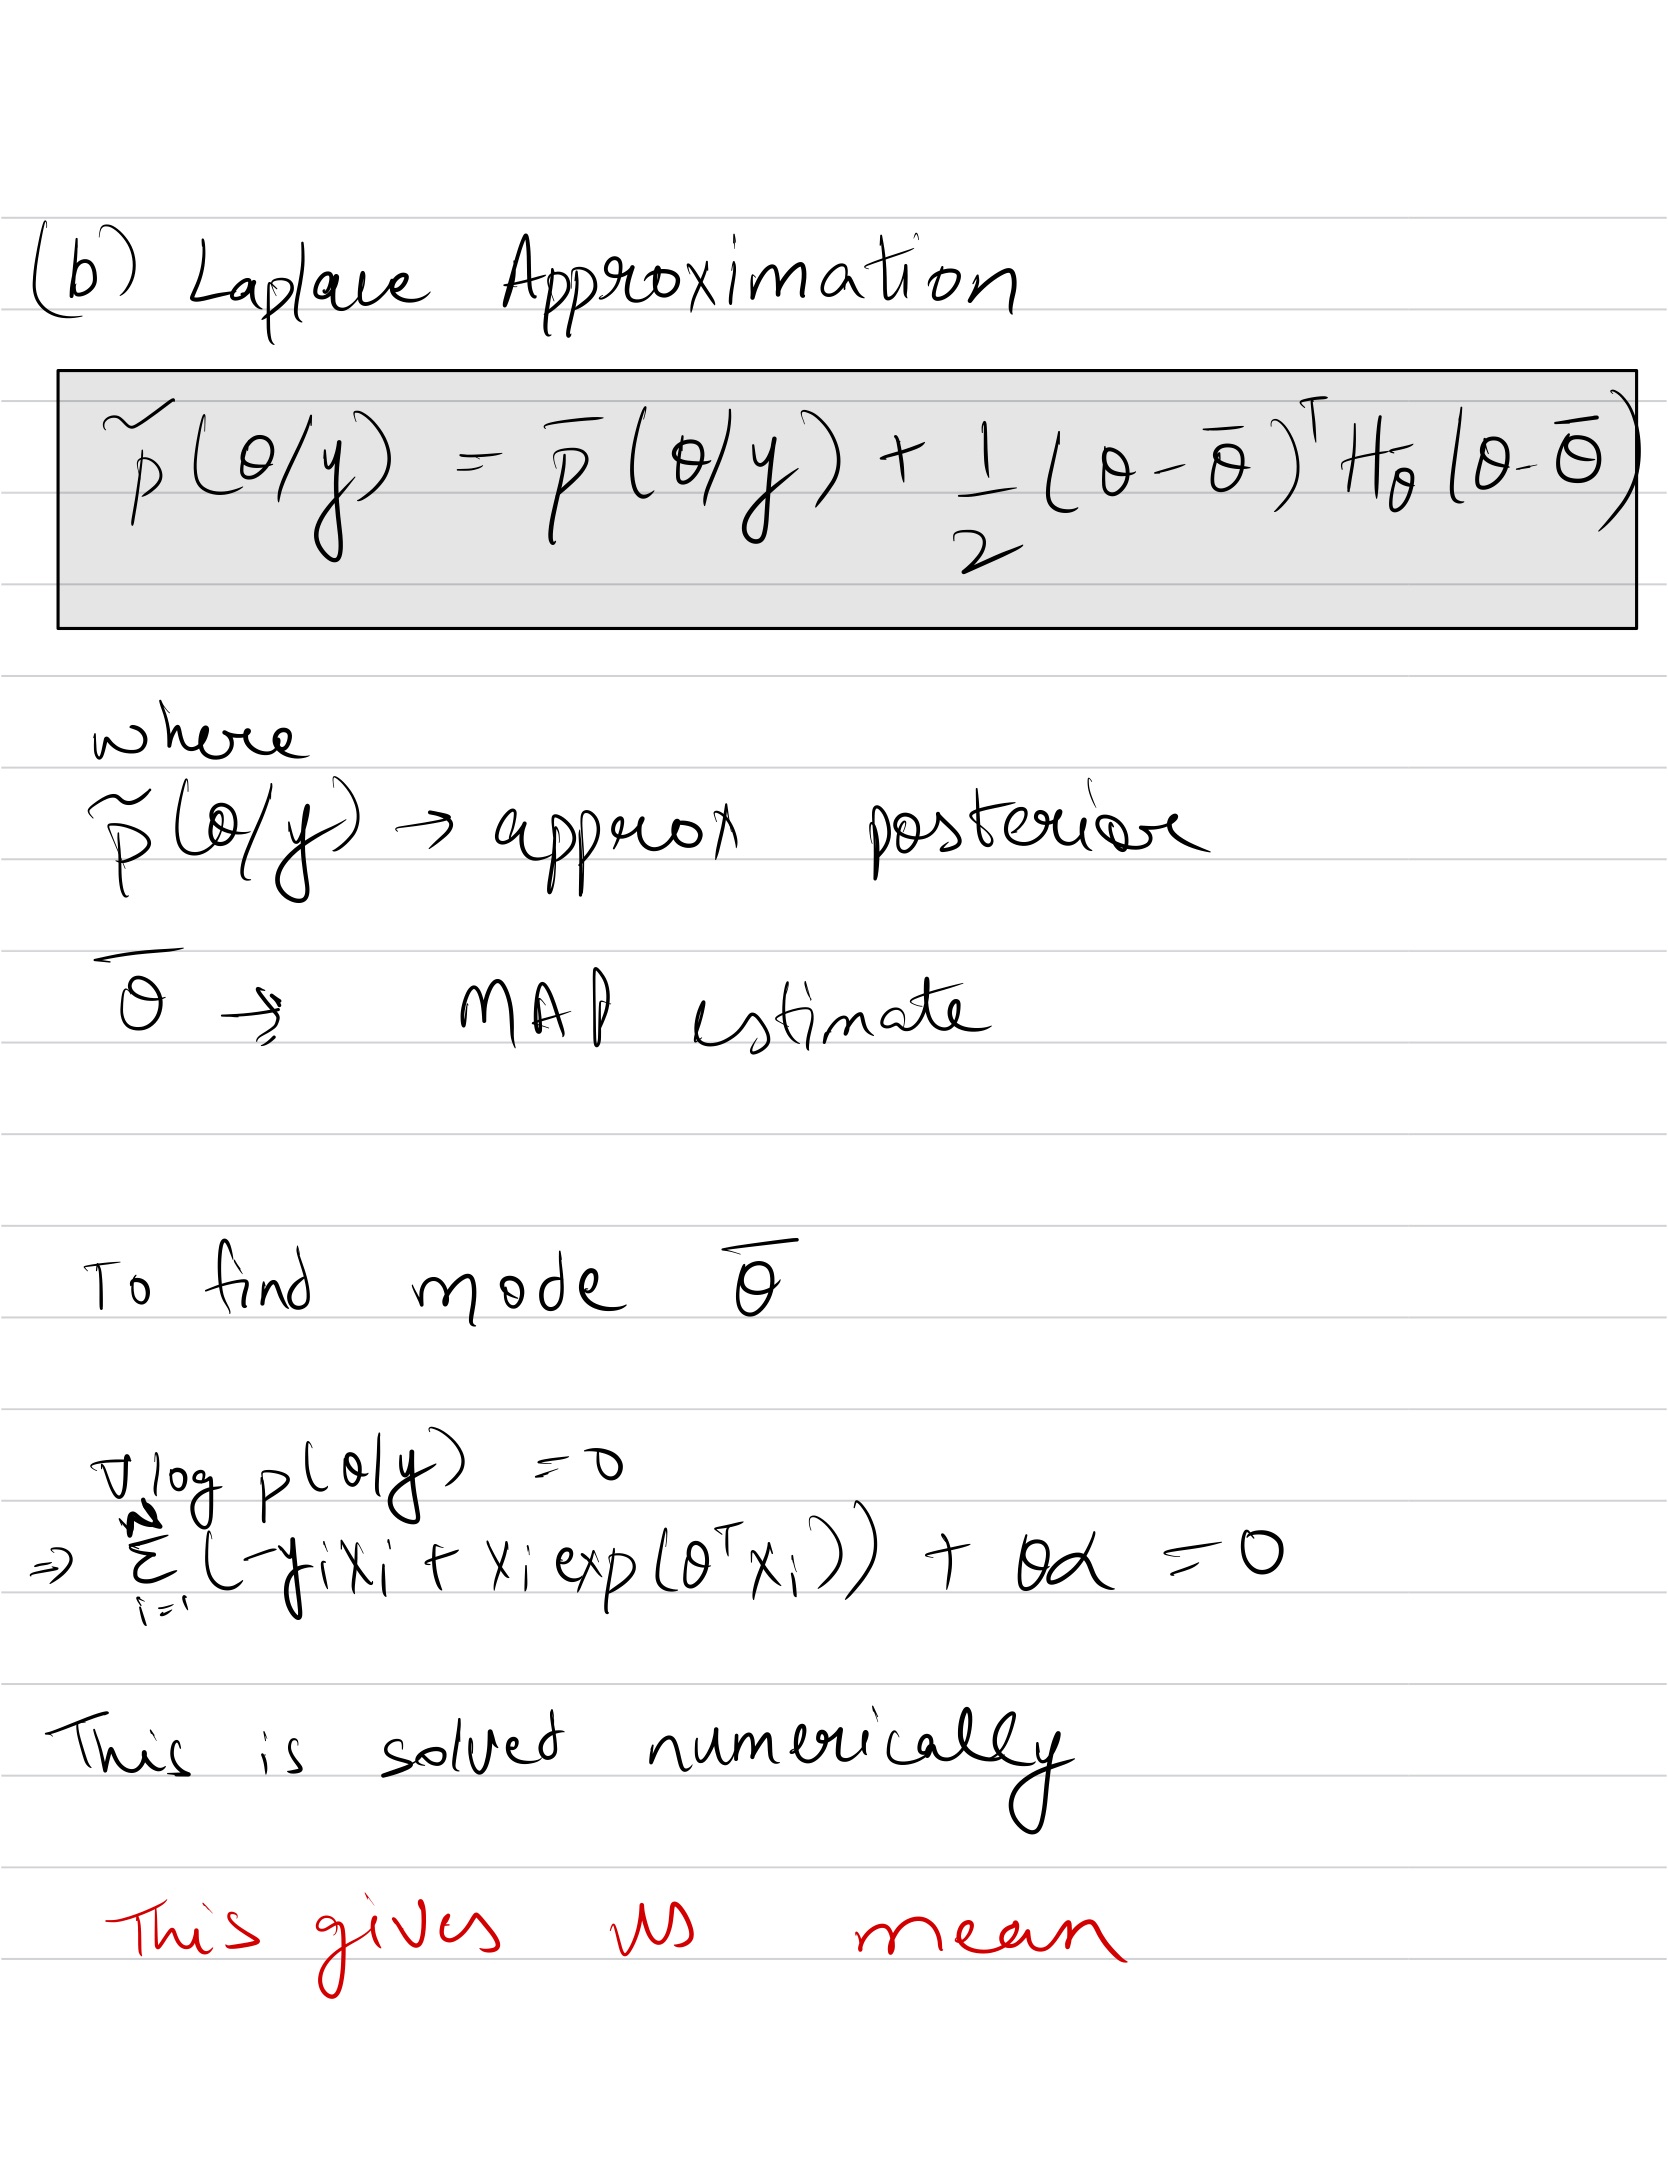 (b) Laplace Approximation
p̃(θ/y) = p̄(θ/y) + 1/2 (θ-θ̄)ᵀ H_θ (θ-θ̄)
where
p̃(θ/y) → approx posterior
θ̄ → MAP estimate
To find mode θ̄
∇log p(θ|y) = 0
⇒ Σ_{i=1}^{N} (-yᵢxᵢ + xᵢ exp(θᵀxᵢ)) + θα = 0
This is solved numerically
This gives us mean